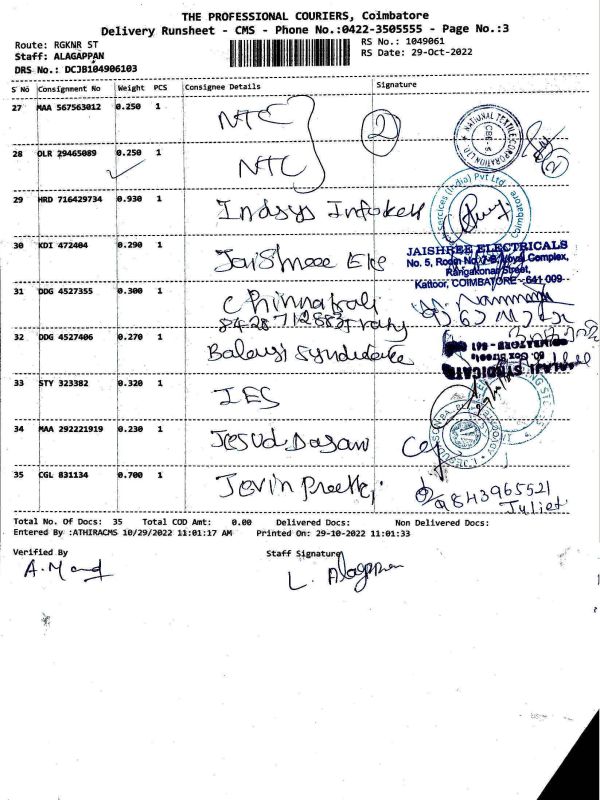 THE PROFESSIONAL COURIERS, Coimbatore
Delivery Runsheet - CMS - Phone No.:0422-3505555 - Page No.:3
Route: RGKNR ST
RS No.: 1049061
Staff: ALAGAPPAN
RS Date: 29-Oct-2022
DRS No.: DCJB104906103
S No Consignment No Weight PCS Consignee Details Signature
27 MAA 567563012 0.250 1 NTC
2
NATIONAL TEXTILE CORPORATION LTD.
28 OLR 29465089 0.250 1 NTC
2
29 HRD 716429734 0.930 1 Indsys Infotech
Services (India) Pvt Ltd
Coimbatore
30 KDI 472404 0.290 1 Jaishree Ele
JAISHREE ELECTRICALS
No. 5, Room No. 7-B, Royal Complex,
Rangakonar Street,
Kattoor, COIMBATORE - 641 009
31 DDG 4527355 0.300 1 Chinnakali
32 DDG 4527406 0.270 1 Balaji Syndicate
BALAJI SYNDICATE
33 STY 323382 0.320 1 IES
34 MAA 292221919 0.230 1 Jesudasan
35 CGL 831134 0.700 1 Jovin Preethi
9843965521
Juliet
Total No. Of Docs: 35 Total COD Amt: 0.00 Delivered Docs: Non Delivered Docs:
Entered By :ATHIRACMS 10/29/2022 11:01:17 AM Printed On: 29-10-2022 11:01:33
Verified By Staff Signature
A. Mand
L. Alagappan